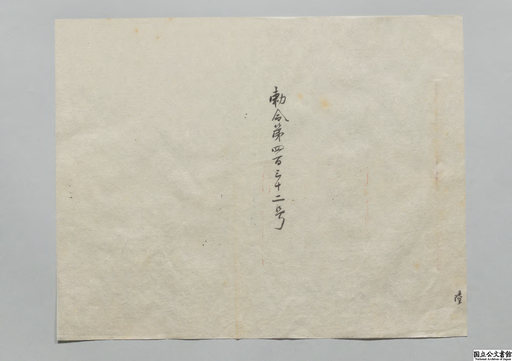 勅令第四百三十二号
陸
国立公文書館
National Archives of Japan